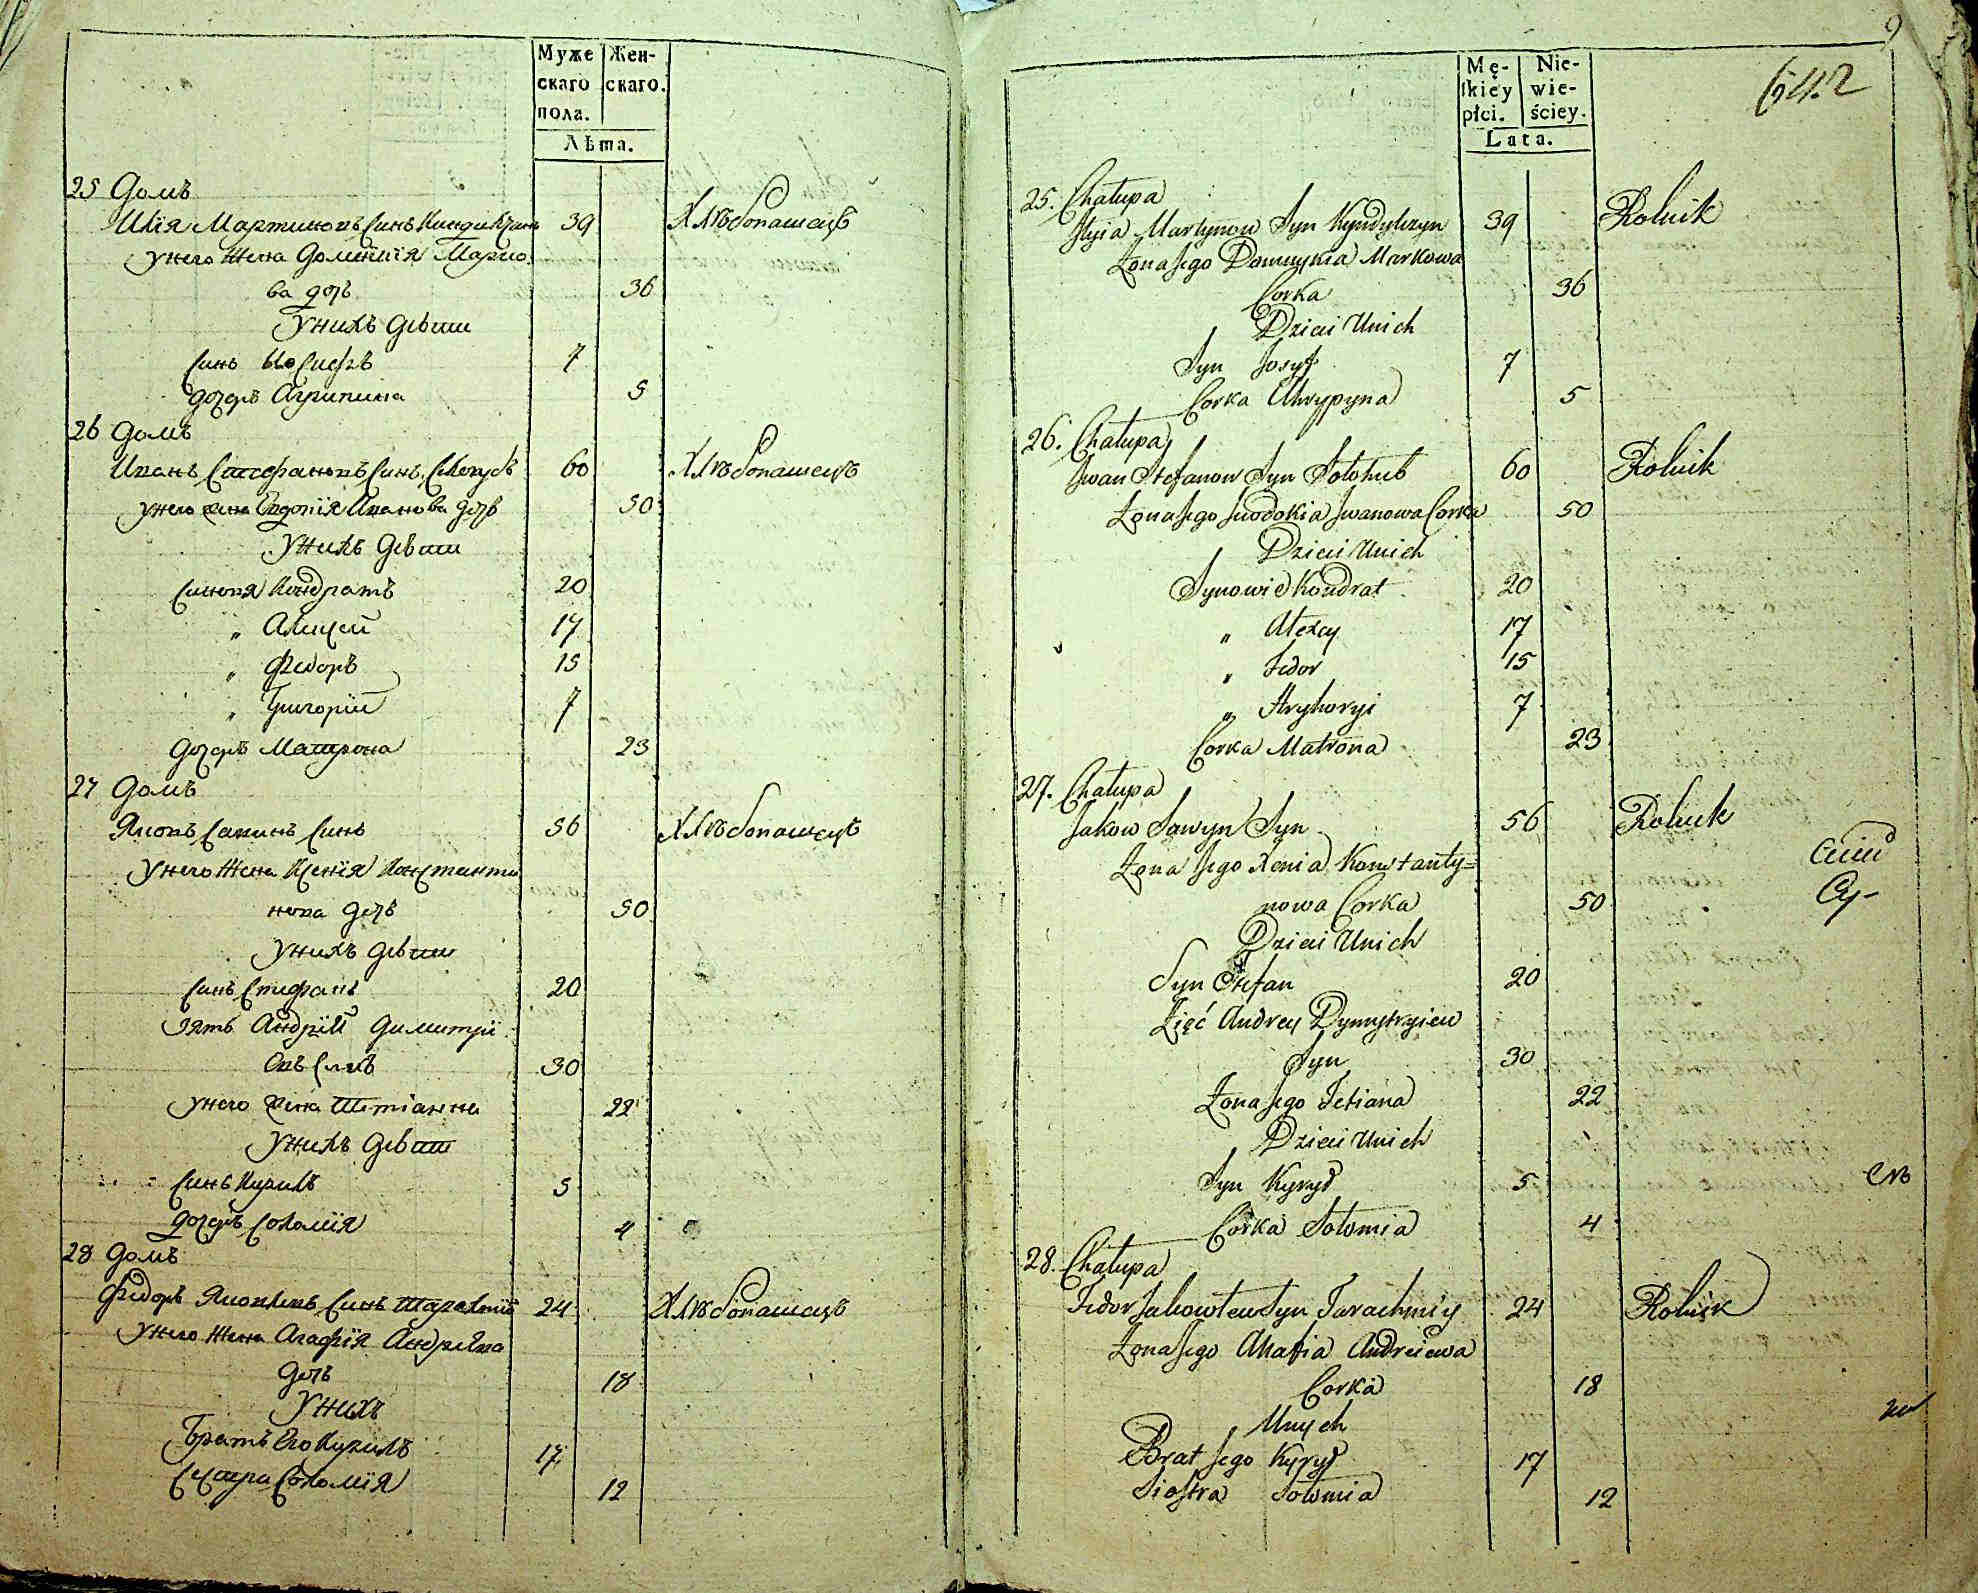 Муже
скаго
пола.
Жен-
скаго.
Лѣта.
25 Домъ
Илія Мартиновъ Синъ 39 Хлѣбопашецъ
Унего Жена Домникія Марко
ва дочь 36
Унихъ Дѣти
Синъ Іосифъ 7
Дочерь Агрипина 5
26 Домъ
Иванъ Стефановъ Синъ 60 Хлѣбопашецъ
Унего жена Евдокія Иванова дочь 50
Унихъ Дѣти
Синовя Кондратъ 20
„ Алексей 17
„ Федоръ 15
„ Григорій 7
Дочерь Матрона 23
27 Домъ
Яковъ Савинъ Синъ 56 Хлѣбопашецъ
Унего Жена Ксенія Константи
нова дочь 50
Унихъ Дѣти
Синъ Стефанъ 20
Зять Андрій Димитрі
евъ Синъ 30
Унего жена Тетіанна 22
Унихъ Дѣти
Синъ Кирилъ 5
Дочерь Соломія 4
28 Домъ
Федоръ Яковлевъ Синъ 24 Хлѣбопашецъ
Унего Жена Агафія Андрѣева
дочь 18
Унихъ
Братъ Его Кирилъ 17
Сестра Соломія 12
9
642
Mę-
skiey
płci.
Nie-
wie-
ściey.
Lata.
25. Chałupa
Ilyia Martynow Syn Kyndylczyn 39 Rolnik
Żona Jego Domnykia Markowa
Corka 36
Dzieci Unich
Syn Josyf 7
Corka Ahrypyna 5
26. Chałupa
Iwan Stefanow Syn Sołohub 60 Rolnik
Żona Jego Jewdokia Iwanowa Corka 50
Dzieci Unich
Synowie Kondrat 20
„ Alexey 17
„ Fedor 15
„ Hryhoryi 7
Corka Matrona 23
27. Chałupa
Jakow Sawyn Syn 56 Rolnik
Żona Jego Xenia Konstanty=
nowa Corka 50
Dzieci Unich
Syn Stefan 20
Zięć Andrey Dymytryiew
Syn 30
Żona Jego Tetiana 22
Dzieci Unich
Syn Kyrył 5
Corka Sołomia 4
28. Chałupa
Fedor Jakowlew Syn Tarachmiy 24 Rolnik
Żona Jego Ahafia Andreiewa
Corka 18
Unych
Brat Jego Kyrył 17
Siostra Sołomia 12